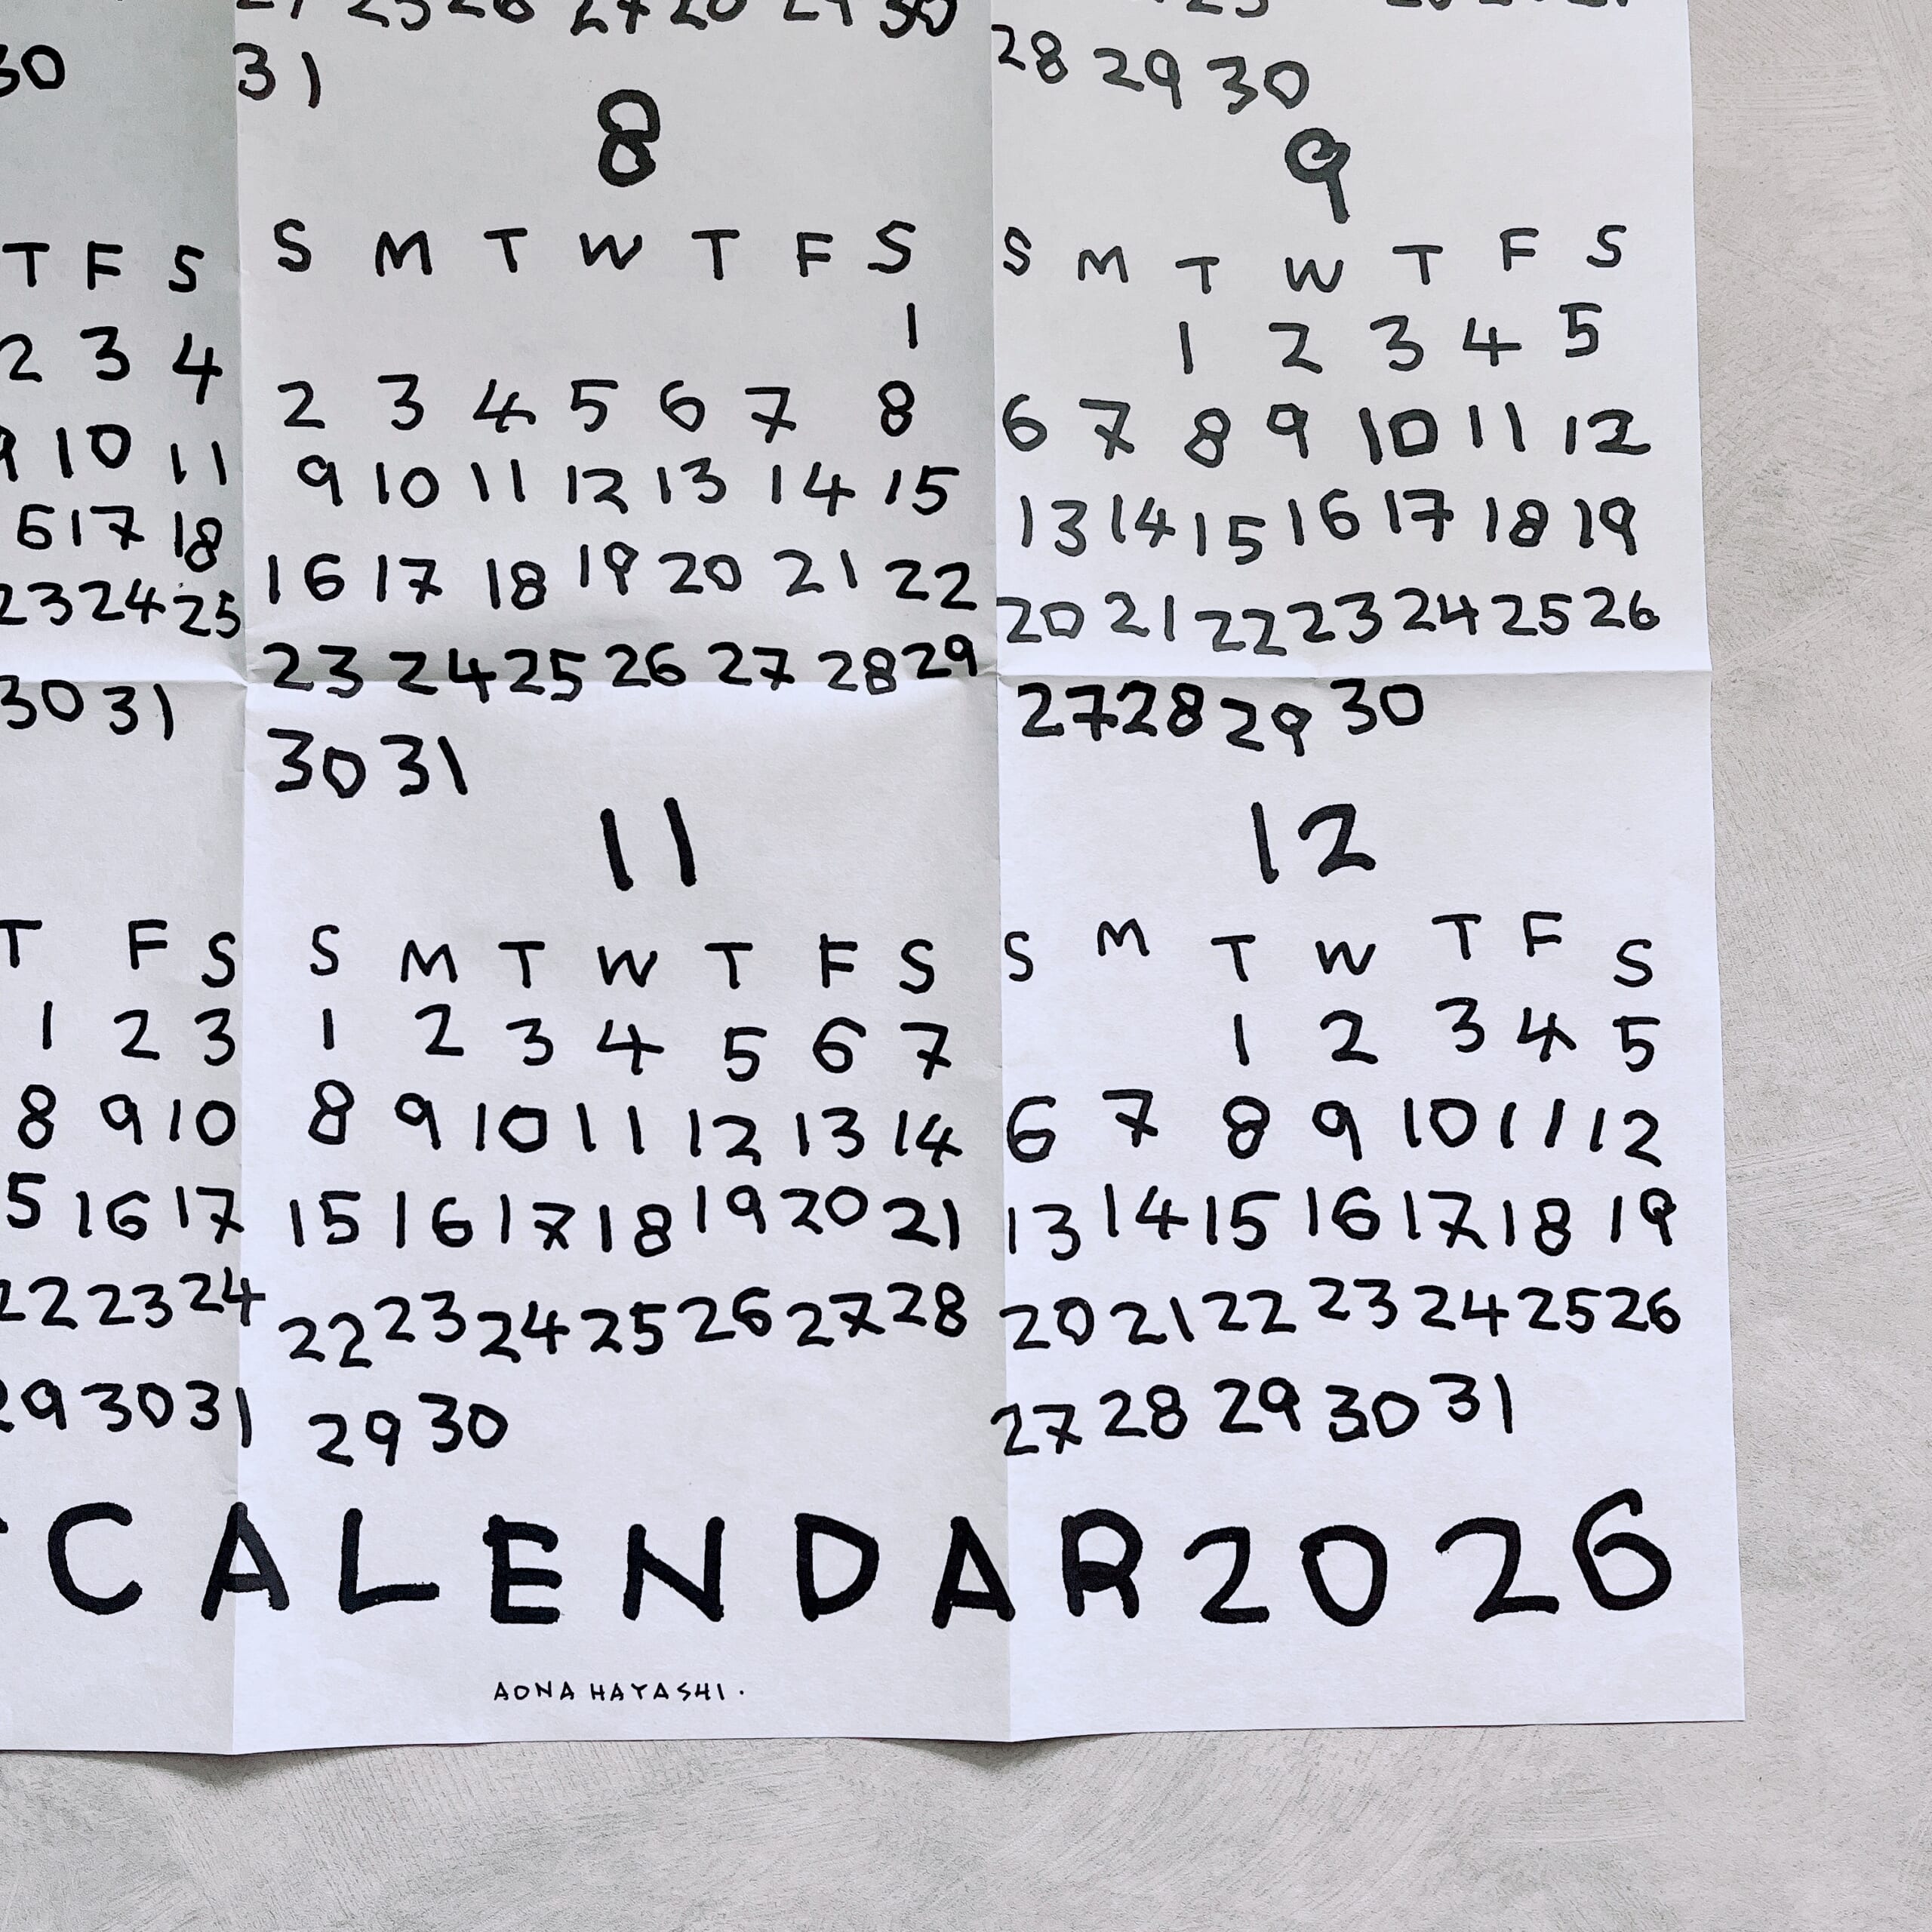 30
T F S
2 3 4
9 10 11
6 17 18
23 24 25
30 31
T F S
1 2 3
8 9 10
5 16 17
22 23 24
29 30 31
25 26 27 28 29 30
31
8
S M T W T F S
1
2 3 4 5 6 7 8
9 10 11 12 13 14 15
16 17 18 19 20 21 22
23 24 25 26 27 28 29
30 31
11
S M T W T F S
1 2 3 4 5 6 7
8 9 10 11 12 13 14
15 16 17 18 19 20 21
22 23 24 25 26 27 28
29 30
28 29 30
9
S M T W T F S
1 2 3 4 5
6 7 8 9 10 11 12
13 14 15 16 17 18 19
20 21 22 23 24 25 26
27 28 29 30
12
S M T W T F S
1 2 3 4 5
6 7 8 9 10 11 12
13 14 15 16 17 18 19
20 21 22 23 24 25 26
27 28 29 30 31
CALENDAR 2026
AONA HAYASHI.